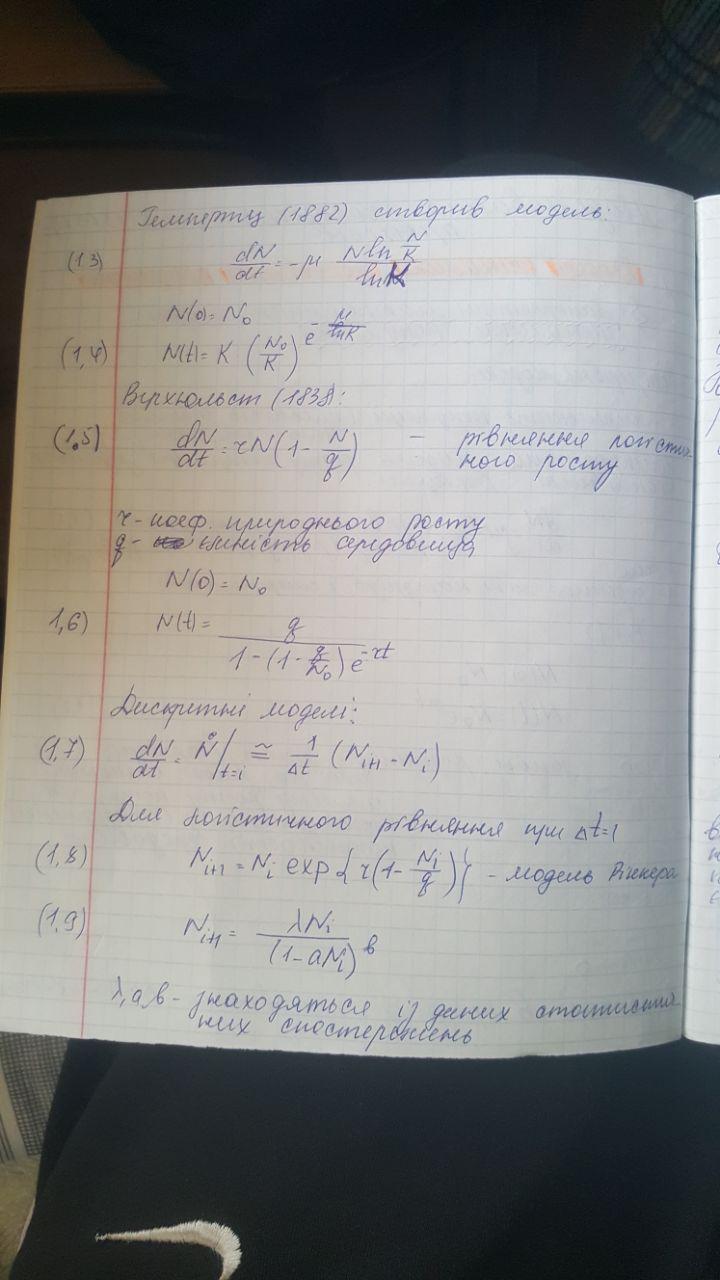 Гемпертц (1882) створив модель:
(1.3) dN/dt = -μ N ln N/K / ln K
N(0) = N₀
(1,4) N(t) = K (N₀/K)^e^-μ/lnK
Верхюльст (1838):
(1,5) dN/dt = rN(1 - N/q) — рівняння логістич-
ного росту
r - коеф. природнього росту
q - ємність середовища
N(0) = N₀
1,6) N(t) = q / 1-(1-q/N₀)e^-rt
Дискритні моделі:
(1,7) dN/dt = N° /t=i ≅ 1/Δt (Nᵢ₊₁ - Nᵢ)
Для логістичного рівняння при Δt=1
(1,8) Nᵢ₊₁ = Nᵢ exp{r(1-Nᵢ/q)} - модель Рікера
(1,9) Nᵢ₊₁ = λNᵢ / (1-aNᵢ)^в
λ,a,в - знаходяться із даних статистич
них спостережень